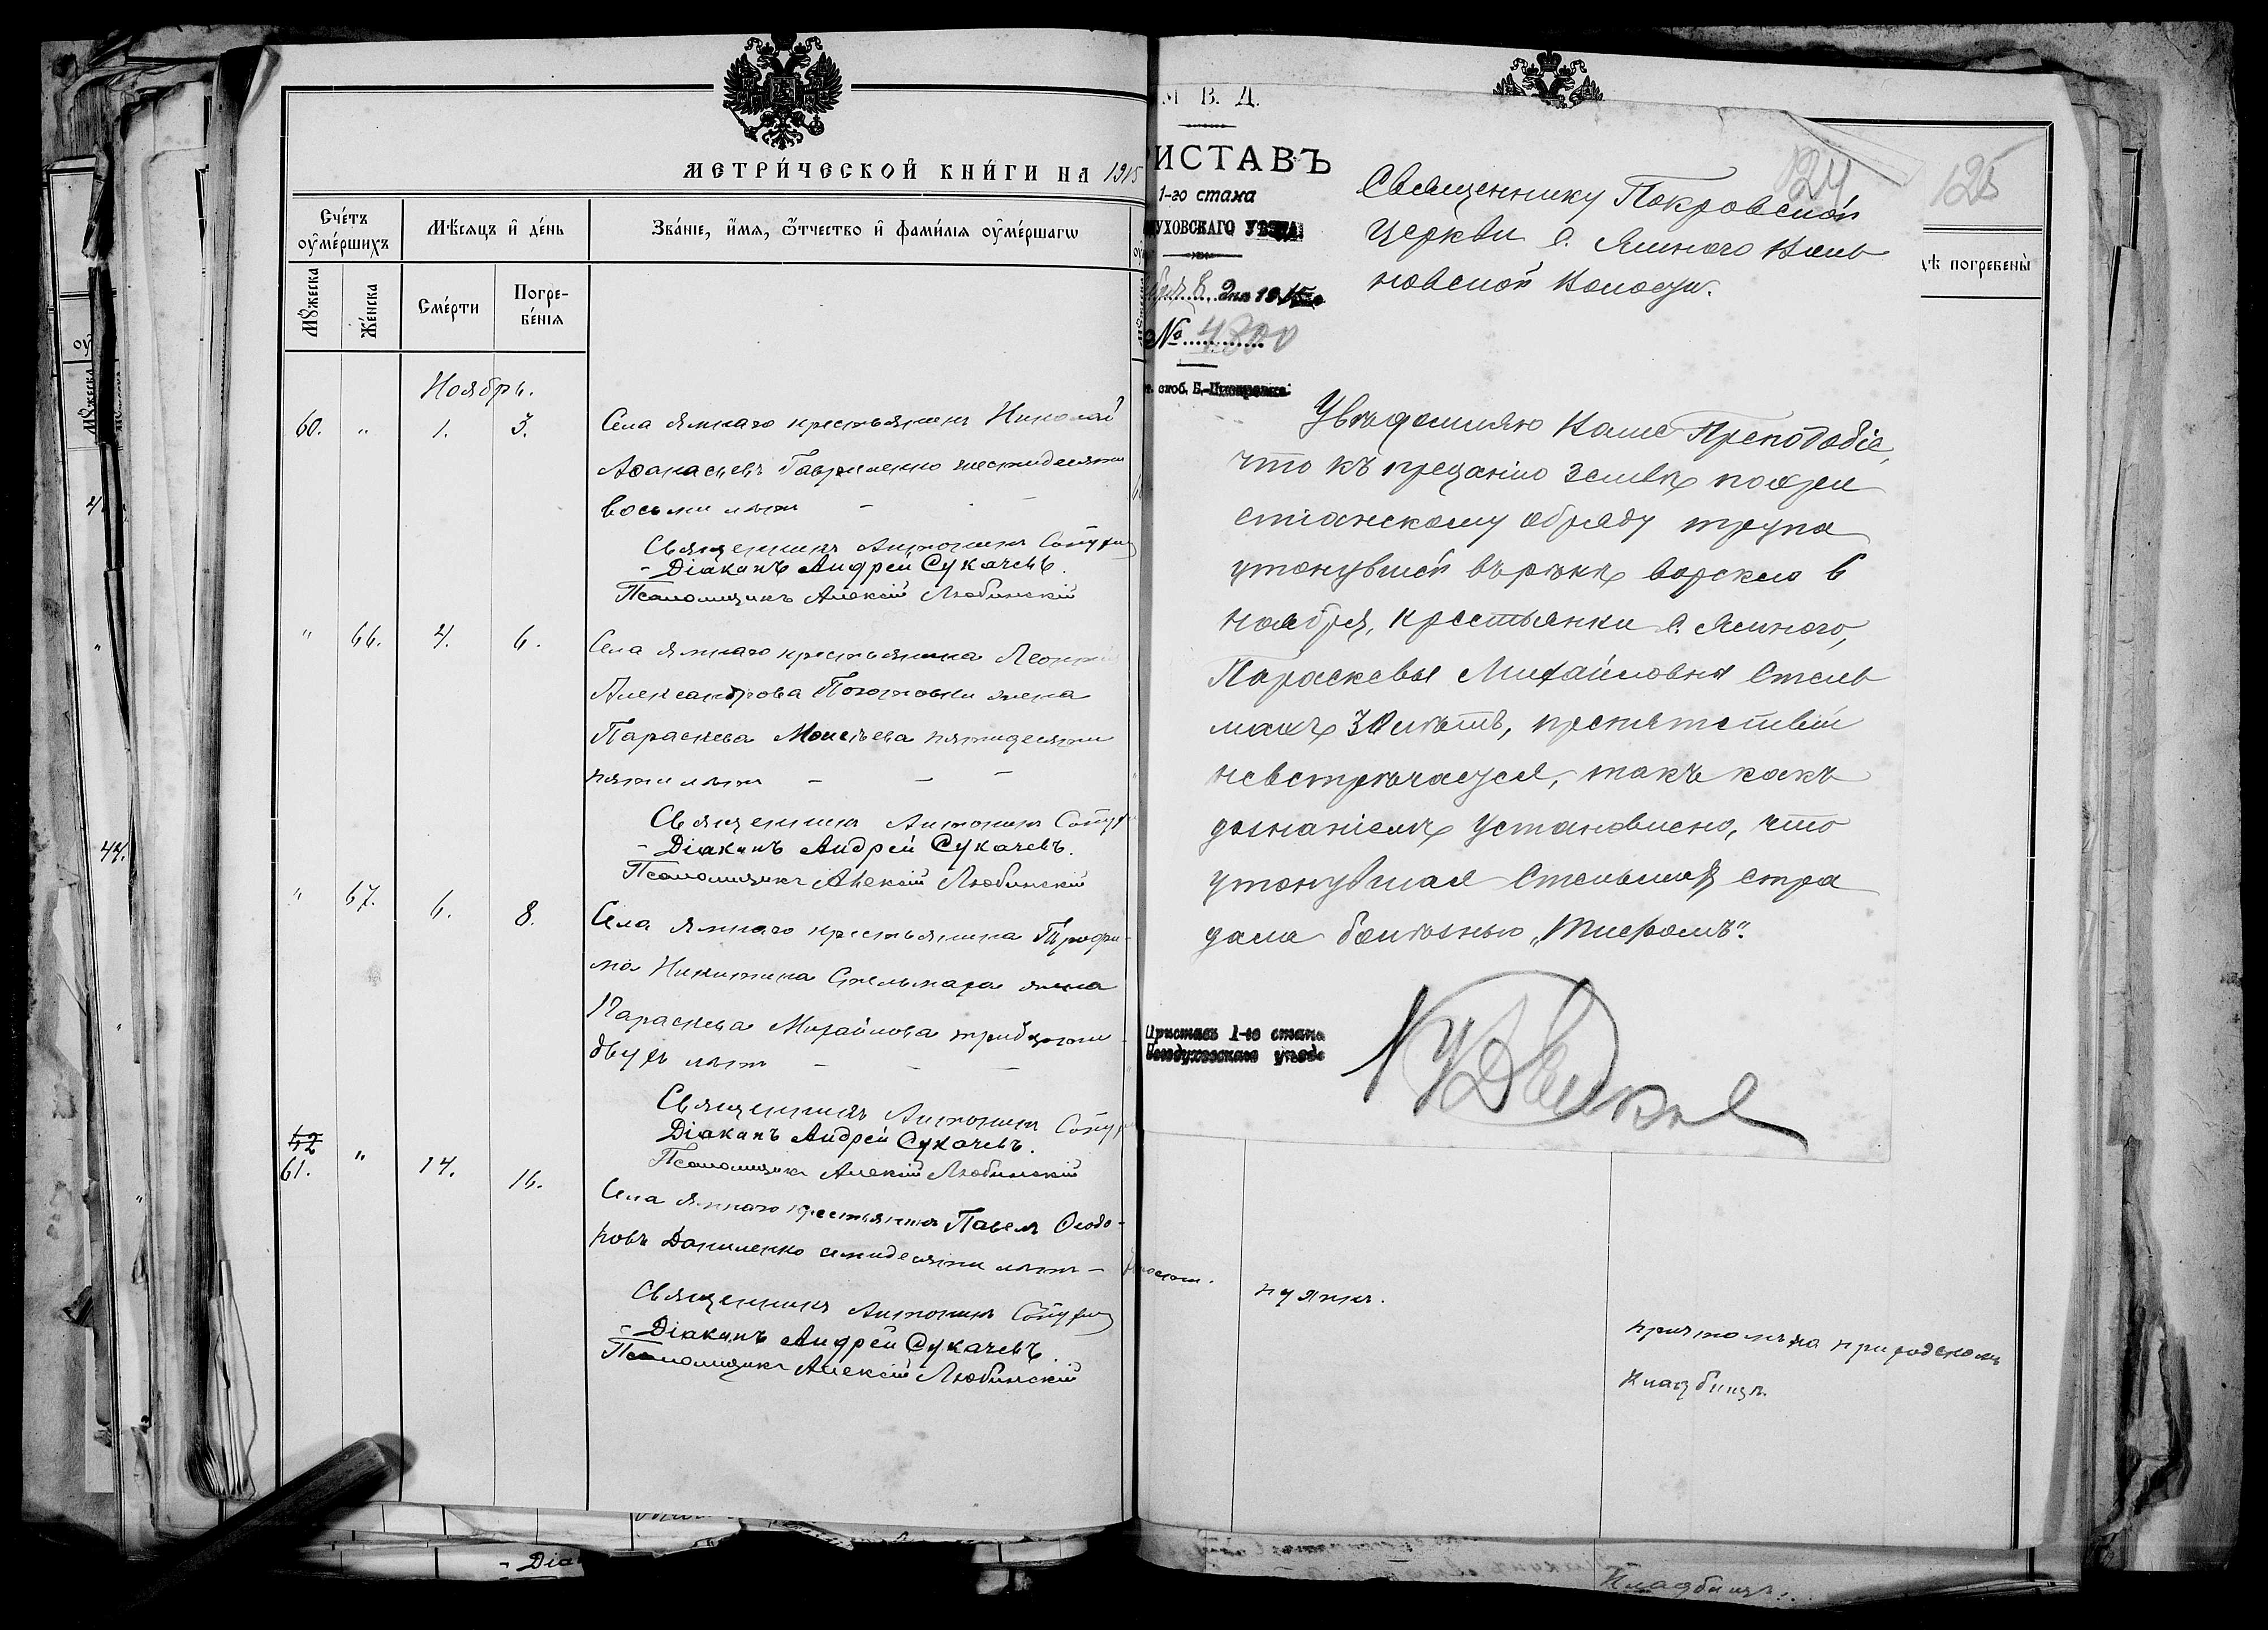 МЕТРИ́ЧЕСКОЙ КНИ́ГИ НА 1915
Сче́тъ
оу҆ме́ршихъ
Мѣ́сяцъ и҆ де́нь
Зва́нїе, и҆́мѧ, ѻ҆́тчество и҆ фами́лїѧ оу҆ме́ршагѡ
Мꙋ́жеска
Же́нска
Сме́рти
Погре-
бе́нїѧ
Ноябрь.
60. " 1. 3. Села Ямнаго крестьянинъ Николай
Аѳанасьевъ Гавриленко шестидесяти
восьми лѣтъ –
Священникъ Антонинъ
- Діаконъ Андрей Сукачевъ.
Псаломщикъ Алексій Любинскій
" 66. 4. 6. Села Ямнаго крестьянина Леонтія
Александрова жена
Параскева Моисѣева пятидесяти
пяти лѣтъ – – –
Священникъ Антонинъ
- Діаконъ Андрей Сукачевъ.
Псаломщикъ Алексій Любинскій
" 67. 6. 8. Села Ямнаго крестьянина Трофи-
ма Никитина Стельмаха жена
Параскева Михайлова тридцати
двухъ лѣтъ – –
Священникъ Антонинъ
Діаконъ Андрей Сукачевъ.
Псаломщикъ Алексій Любинскій
42
61. " 14. 16. Села Ямнаго крестьянинъ Павелъ Ѳеодо-
ровъ Даниленко семидесяти лѣтъ –
Священникъ Антонинъ
- Діаконъ Андрей Сукачевъ.
Псаломщикъ Алексій Любинскій
М В. Д.
ИСТАВЪ
1-го стана
УХОВСКАГО УѢЗДА
8 дня 1915
№ 4300
124
125
Священнику Покровской
Церкви с. Ямного
новской волости.
дѣ погребены̀
Увѣдомляю Ваше Преподобіе,
что къ преданію землѣ по хри
стіанскому обряду трупа
утонувшей въ рѣкѣ Ворскло 6
ноября, крестьянки с. Ямного,
Параскевы Михайловны Стель
махъ 30 лѣтъ, препятствій
невстрѣчается, такъ какъ
дознаніемъ установлено, что
утонувшая Стельмахъ стра
дала болѣзнью „Тифомъ".
Приставъ 1-го стана
уѣзда
пуянкъ.
на приходскомъ
Кладбищѣ.
- Діа
Кладбищѣ.